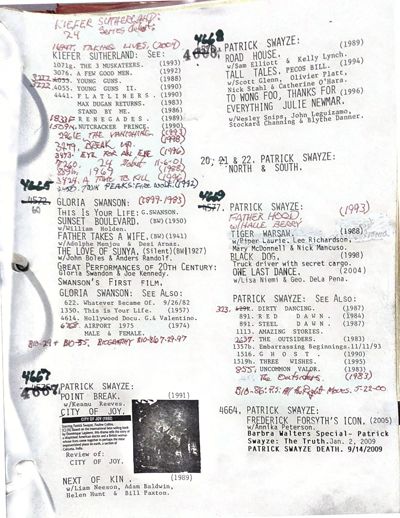 KIEFER SUTHERLAND:
24
Series debut.
TAKING LIVES, (2004)
KIEFER SUTHERLAND: See:
1071g. THE 3 MUSKETEERS. (1993)
3076. A FEW GOOD MEN. (1992)
4055. YOUNG GUNS. (1988)
4055. YOUNG GUNS II. (1990)
4441. FLATLINERS. (1990)
MAX DUGAN RETURNS. (1983)
STAND BY ME. (1986)
RENEGADES. (1989)
NUTCRACKER PRINCE. (1990)
THE VANISHING (1993)
BREAK UP.
EYE FOR AN EYE (1996)
24 11-6-01
1969 (1988)
A TIME TO KILL (1996)
TWIN PEAKS: FIRE WALK (1992)
4665
4572. GLORIA SWANSON: (1899-1983)
60
This Is Your Life: G.SWANSON.
SUNSET BOULEVARD. (BW)(1950)
w/William Holden.
FATHER TAKES A WIFE.(BW)(1941)
w/Adolphe Menjou & Desi Arnaz.
THE LOVE OF SUNYA. (Silent)(BW)1927)
w/John Boles & Anders Randolf.
GREAT PERFORMANCES OF 20TH CENTURY:
Gloria Swandon & Joe Kennedy.
SWANSON'S FIRST FILM.
GLORIA SWANSON: See Also:
622. Whatever Became Of. 9/26/82
1350. This is Your Life. (1957)
4614. Hollywood Docu. G.& Valentino.
AIRPORT 1975 (1974)
MALE & FEMALE.
BIOGRAPHY 810-867-29-97
4667
PATRICK SWAYZE:
POINT BREAK. (1991)
w/Keanu Reeves.
CITY OF JOY.
CITY OF JOY (1992)
Review of:
CITY OF JOY.
NEXT OF KIN. (1989)
w/Liam Neeson, Adam Baldwin,
Helen Hunt & Bill Paxton.
4668
PATRICK SWAYZE: (1989)
ROAD HOUSE.
w/Sam Elliott & Kelly Lynch.
TALL TALES. PECOS BILL. (1994)
w/Scott Glenn, Oliver Platt,
Nick Stahl & Catherine O'Hara.
TO WONG FOO, THANKS FOR (1996)
EVERYTHING JULIE NEWMAR.
w/Wesley Snips, John Leguizamo,
Stockard Channing & Blythe Danner.
20, 21 & 22. PATRICK SWAYZE:
NORTH & SOUTH.
4669
4577. PATRICK SWAYZE:
FATHER HOOD, (1993)
w/HALLE BERRY
TIGER WARSAW. (1988)
w/Piper Laurie, Lee Richardson,
Mary McDonnell & Nick Mancuso.
BLACK DOG. (1998)
Truck driver with secret cargo.
ONE LAST DANCE. (2004)
w/Lisa Niemi & Geo. DeLa Pena.
PATRICK SWAYZE: See Also:
DIRTY DANCING. (1987)
891. RED DAWN (1984)
891. STEEL DAWN (1987)
1113. AMAZING STORIES.
THE OUTSIDERS. (1983)
1357b. Embarrassing Beginnings.11/11/93
1516. GHOST. (1990)
1519h. THREE WISHES. (1995)
855. UNCOMMON VALOR. (1983)
The Outsiders. (1983)
All the Right Moves. 5-22-00
4664. PATRICK SWAYZE:
FREDERICK FORSYTH'S ICON. (2005)
w/Annika Peterson.
Barbra Walters Special- Patrick
Swayze: The Truth.Jan. 2, 2009
PATRICK SWAYZE DEATH. 9/14/2009